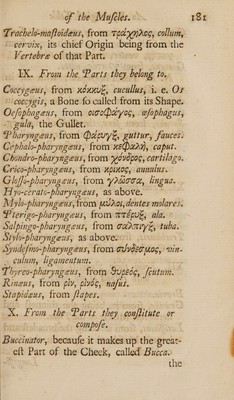 of the Muſcles. 181
Trachelo-maſtoidæus, from τράχηλος, collum,
cervix, its chief Origin being from the
Vertebræ of that Part.
IX. From the Parts they belong to.
Coccygæus, from κόκκυξ, cucullus, i. e. Os
coccygis, a Bone ſo called from its Shape.
Oeſophagæus, from οισοφάγος, œſophagus,
gula, the Gullet.
Pharyngæus, from Φάρυγξ, guttur, fauces.
Cephalo-pharyngæus, from κεφαλή, caput.
Chondro-pharyngæus, from χόνδρος, cartilago.
Crico-pharyngæus, from κρικος, annulus.
Gloſſo-pharyngæus, from γλῶσσα, lingua.
Hyo-cerato-pharyngæus, as above.
Mylo-pharyngæus, from μύλοι, dentes molares.
Pterigo-pharyngæus, from πτέρυξ, ala.
Salpingo-pharyngæus, from σαλπιγξ, tuba.
Stylo-pharyngæus, as above.
Syndeſmo-pharyngæus, from σύνδεσμος, vin-
culum, ligamentum.
Thyreo-pharyngæus, from θυρεός, ſcutum.
Rinæus, from ῥὶν, ῥινός, naſus.
Stapidæus, from ſtapes.
X. From the Parts they conſtitute or
compoſe.
Buccinator, becauſe it makes up the great-
eſt Part of the Cheek, called Bucca.
the